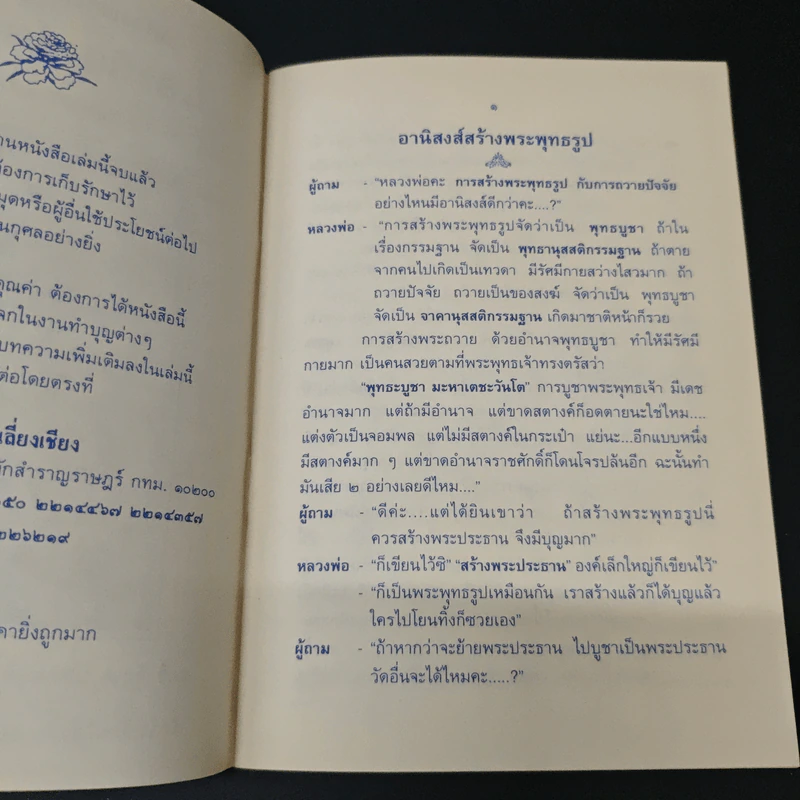 านหนังสือเล่มนี้จบแล้ว
ต้องการเก็บรักษาไว้
มุดหรือผู้อื่นใช้ประโยชน์ต่อไป
นกุศลอย่างยิ่ง
คุณค่า ต้องการได้หนังสือนี้
จกในงานทำบุญต่างๆ
บทความเพิ่มเติมลงในเล่มนี้
ต่อโดยตรงที่
เลี่ยงเชียง
ักสำราญราษฎร์ กทม. ๑๐๒๐๐
๕๐ ๒๒๑๔๔๖๗ ๒๒๑๔๓๕๗
๒๒๖๒๑๙
คายิ่งถูกมาก
๑
อานิสงส์สร้างพระพุทธรูป
ผู้ถาม - "หลวงพ่อคะ การสร้างพระพุทธรูป กับการถวายปัจจัย
อย่างไหนมีอานิสงส์ดีกว่าคะ....?"
หลวงพ่อ - "การสร้างพระพุทธรูปจัดว่าเป็น พุทธบูชา ถ้าใน
เรื่องกรรมฐาน จัดเป็น พุทธานุสสติกรรมฐาน ถ้าตาย
จากคนไปเกิดเป็นเทวดา มีรัศมีกายสว่างไสวมาก ถ้า
ถวายปัจจัย ถวายเป็นของสงฆ์ จัดว่าเป็น พุทธบูชา
จัดเป็น จาคานุสสติกรรมฐาน เกิดมาชาติหน้าก็รวย
การสร้างพระถวาย ด้วยอำนาจพุทธบูชา ทำให้มีรัศมี
กายมาก เป็นคนสวยตามที่พระพุทธเจ้าทรงตรัสว่า
"พุทธะบูชา มะหาเตชะวันโต" การบูชาพระพุทธเจ้า มีเดช
อำนาจมาก แต่ถ้ามีอำนาจ แต่ขาดสตางค์ก็อดตายนะใช่ไหม....
แต่งตัวเป็นจอมพล แต่ไม่มีสตางค์ในกระเป๋า แย่นะ...อีกแบบหนึ่ง
มีสตางค์มาก ๆ แต่ขาดอำนาจราชศักดิ์ก็โดนโจรปล้นอีก ฉะนั้นทำ
มันเสีย ๒ อย่างเลยดีไหม...."
ผู้ถาม - "ดีค่ะ....แต่ได้ยินเขาว่า ถ้าสร้างพระพุทธรูปนี่
ควรสร้างพระประธาน จึงมีบุญมาก"
หลวงพ่อ - "ก็เขียนไว้ซิ" "สร้างพระประธาน" องค์เล็กใหญ่ก็เขียนไว้"
- "ก็เป็นพระพุทธรูปเหมือนกัน เราสร้างแล้วก็ได้บุญแล้ว
ใครไปโยนทิ้งก็ซวยเอง"
ผู้ถาม - "ถ้าหากว่าจะย้ายพระประธาน ไปบูชาเป็นพระประธาน
วัดอื่นจะได้ไหมคะ.....?"